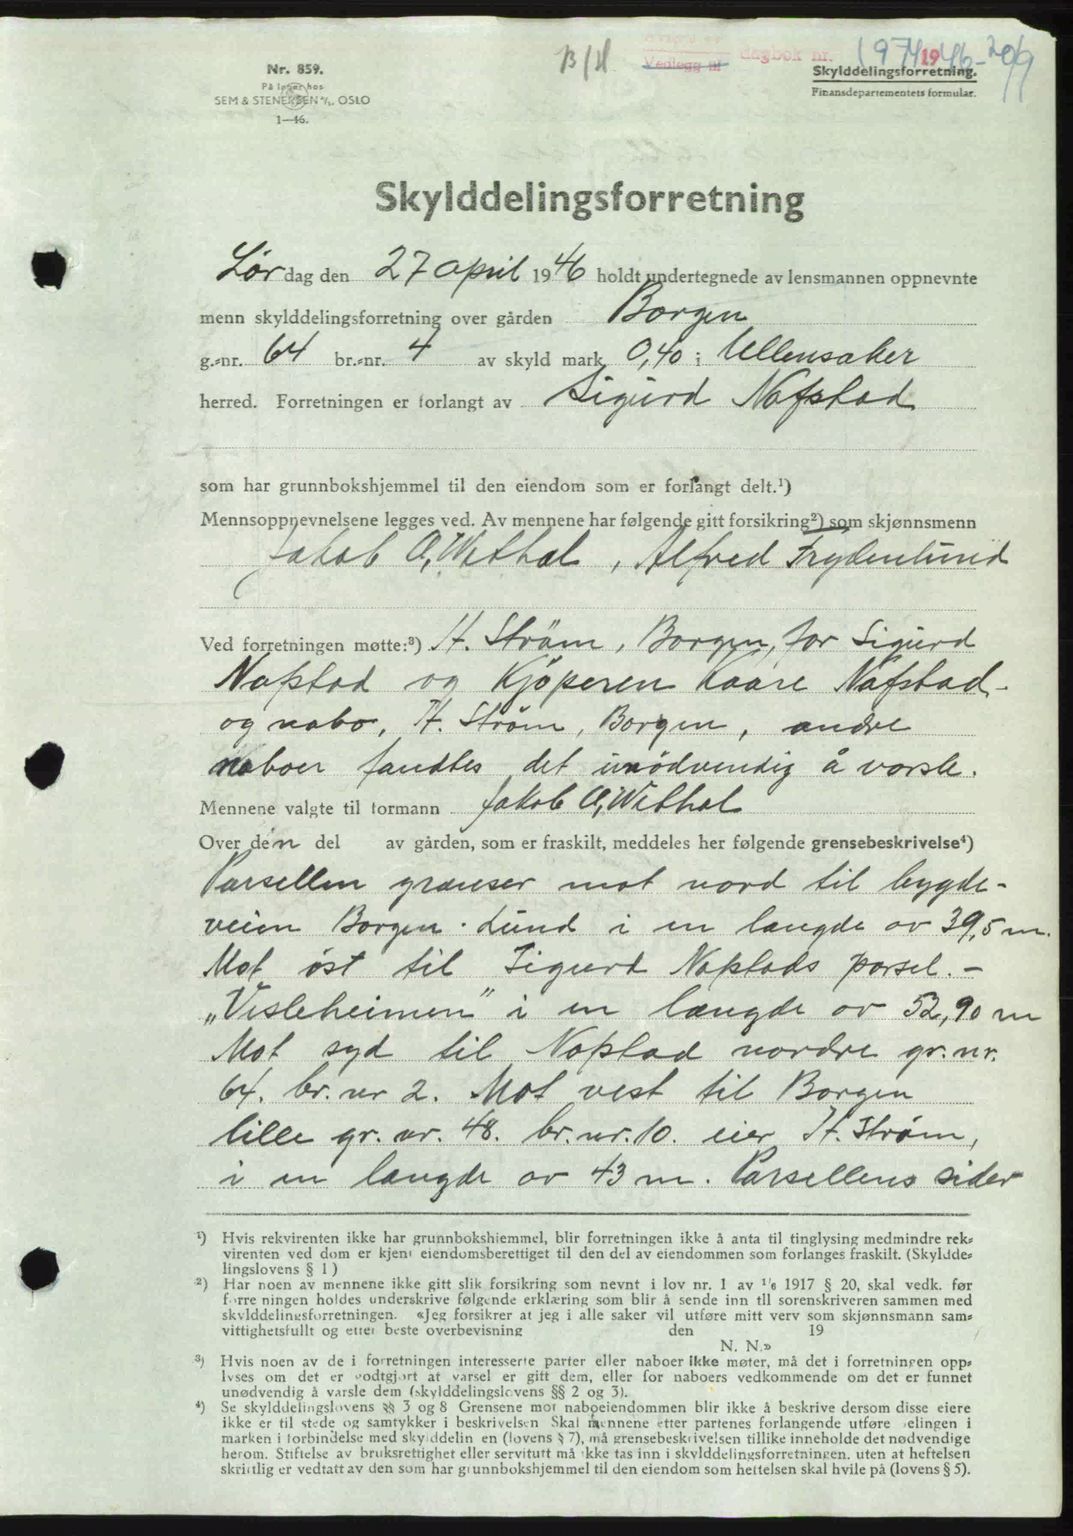 B/H Vedlegg nr dagbok nr. 1974 1946-20/9
Nr. 859.
På lager hos
SEM & STENERSEN A/S, OSLO
1—46.
Skylddelingsforretning.
Finansdepartementets formular.
Skylddelingsforretning
Lørdag den 27 april 1946 holdt undertegnede av lensmannen oppnevnte
menn skylddelingsforretning over gården Borgen
g.-nr. 64 br.-nr. 4 av skyld mark 0,40 i Ullensaker
herred. Forretningen er forlangt av Sigurd Nafstad
som har grunnbokshjemmel til den eiendom som er forlangt delt.¹)
Mennsoppnevnelsene legges ved. Av mennene har følgende gitt forsikring²) som skjønnsmenn
Jakob A, Wethal, Alfred Frydenlund
Ved forretningen møtte:³) H. Strøm, Borgen, for Sigurd
Nafstad og Kjöperen Kaare Nafstad,-
og nabo, H. Strøm, Borgen, andre
naboer fandtes det unödvendig å varsle.
Mennene valgte til formann Jakob A, Wethal
Over den del av gården, som er fraskilt, meddeles her følgende grensebeskrivelse⁴)
Parsellen grænser mot nord til bygde-
veien Borgen - Lund i en længde av 39,5 m.
Mot øst til Sigurd Nafstads parsel. -
„Visleheimen" i en længde av 52,90 m
Mot syd til Nafstad nordre gr. nr.
64. br. nr 2. Mot vest til Borgen
lille gr. nr. 48. br. nr. 10. eier H. Strøm,
i en længde av 43 m. Parsellens sider
¹) Hvis rekvirenten ikke har grunnbokshjemmel, blir forretningen ikke å anta til tinglysing medmindre rek-
virenten ved dom er kjent eiendomsberettiget til den del av eiendommen som forlanges fraskilt. (Skyldde-
lingslovens § 1)
²) Har noen av mennene ikke gitt slik forsikring som nevnt i lov nr. 1 av ¹/6 1917 § 20, skal vedk. før
forretningen holdes underskrive følgende erklæring som blir å sende inn til sorenskriveren sammen med
skylddelingsforretningen. «Jeg forsikrer at jeg i alle saker vil utføre mitt verv som skjønnsmann sam-
vittighetsfullt og etter beste overbevisning den 19
N. N.»
³) Hvis noen av de i forretningen interesserte parter eller naboer ikke møter, må det i forretningen opp-
lyses om det er godtgjort at varsel er gitt dem, eller for naboers vedkommende om det er funnet
unødvendig å varsle dem (skylddelingslovens §§ 2 og 3).
⁴) Se skylddelingslovens §§ 3 og 8 Grensene mot naboeiendommen blir ikke å beskrive dersom disse eiere
ikke er til stede og samtykker i beskrivelsen Skal mennene etter partenes forlangende utføre delingen i
marken i forbindelse med skylddelingen (lovens § 7), må grensebeskrivelsen tillike inneholde det nødvendige
herom. Stiftelse av bruksrettighet eller servitutt må ikke tas inn i skylddelingsforretningen, uten at heftelsen
skriftlig er vedtatt av den som har grunnbokshjemmel til den eiendom som heftelsen skal hvile på (lovens § 5).